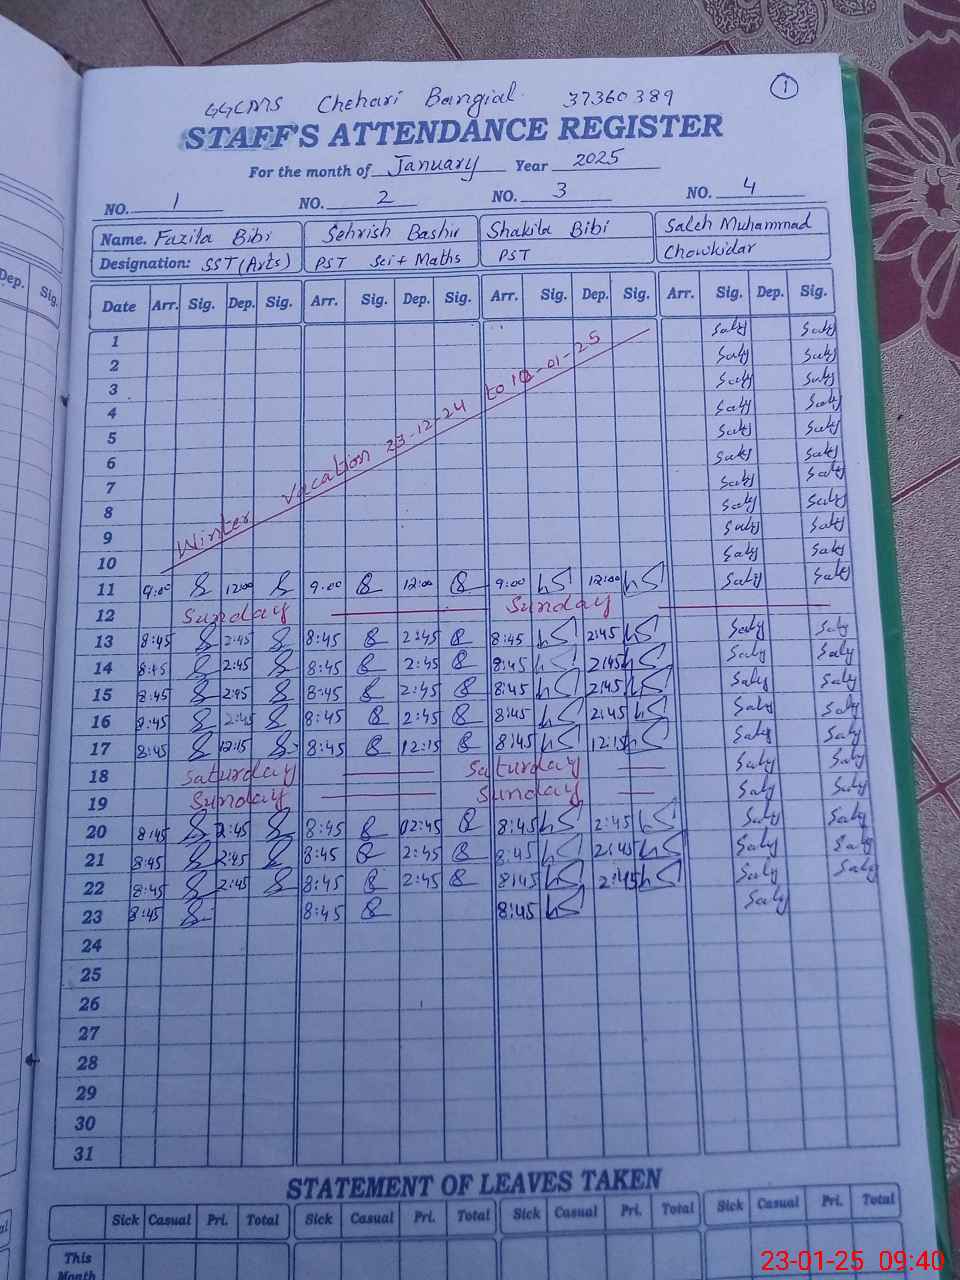 1
GGCMS Chehari Bangial 37360389
STAFF'S ATTENDANCE REGISTER
For the month of January Year 2025
NO. 1 NO. 2 NO. 3 NO. 4
Name. Fazila Bibi Sehrish Bashir Shakila Bibi Saleh Muhammad
Designation: SST (Arts) PST Sci + Maths PST Chowkidar
Dep. Sig.
Date Arr. Sig. Dep. Sig. Arr. Sig. Dep. Sig. Arr. Sig. Dep. Sig. Arr. Sig. Dep. Sig.
1 Saly Saly
2 Saly Saly
3 Saly Saly
4 Saly Saly
5 Saly Saly
6 Saly Saly
7 Saly Saly
8 Saly Saly
9 Saly Saly
10 Saly Saly
Winter Vacation 23-12-24 to 10-01-25
11 9:00 12:00 9:00 12:00 9:00 12:00 Saly Saly
12 Sunday Sunday
13 8:45 2:45 8:45 2:45 8:45 2:45 Saly Saly
14 8:45 2:45 8:45 2:45 8:45 2:45 Saly Saly
15 8:45 2:45 8:45 2:45 8:45 2:45 Saly Saly
16 8:45 2:45 8:45 2:45 8:45 2:45 Saly Saly
17 8:45 12:15 8:45 12:15 8:45 12:15 Saly Saly
18 Saturday Saturday Saly Saly
19 Sunday Sunday Saly Saly
20 8:45 2:45 8:45 02:45 8:45 2:45 Saly Saly
21 8:45 2:45 8:45 2:45 8:45 2:45 Saly Saly
22 8:45 2:45 8:45 2:45 8:45 2:45 Saly Saly
23 8:45 8:45 8:45 Saly
24
25
26
27
28
29
30
31
STATEMENT OF LEAVES TAKEN
Sick Casual Pri. Total Sick Casual Pri. Total Sick Casual Pri. Total Sick Casual Pri. Total
This
Month
23-01-25 09:40